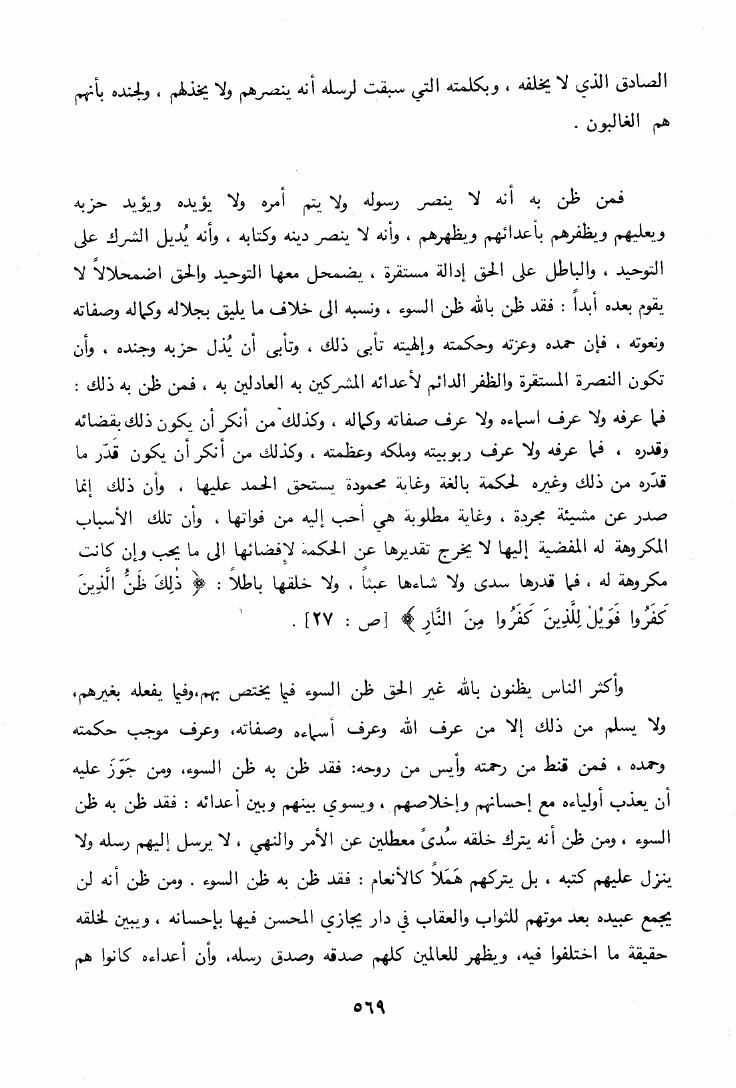 الصادق الذي لا يخلفه ، وبكلمته التي سبقت لرسله أنه ينصرهم ولا يخذلهم ، ولجنده بأنهم
هم الغالبون .
فمن ظن به أنه لا ينصر رسوله ولا يتم أمره ولا يؤيده ويؤيد حزبه
ويعليهم ويظفرهم بأعدائهم ويظهرهم ، وأنه لا ينصر دينه وكتابه ، وأنه يُديل الشرك على
التوحيد ، والباطل على الحق إدالة مستقرة ، يضمحل معها التوحيد والحق اضمحلالاً لا
يقوم بعده أبداً : فقد ظن بالله ظن السوء ، ونسبه الى خلاف ما يليق بجلاله وكماله وصفاته
ونعوته ، فإن حمده وعزته وحكمته وإلهيته تأبى ذلك ، وتأبى أن يُذل حزبه وجنده ، وأن
تكون النصرة المستقرة والظفر الدائم لأعدائه المشركين به العادلين به ، فمن ظن به ذلك :
فما عرفه ولا عرف اسماءه ولا عرف صفاته وكماله ، وكذلك من أنكر أن يكون ذلك بقضائه
وقدره ، فما عرفه ولا عرف ربوبيته وملكه وعظمته ، وكذلك من أنكر أن يكون قدّر ما
قدّره من ذلك وغيره لحكمة بالغة وغاية محمودة يستحق الحمد عليها ، وأن ذلك إنما
صدر عن مشيئة مجردة ، وغاية مطلوبة هي أحب إليه من فواتها ، وأن تلك الأسباب
المكروهة له المفضية إليها لا يخرج تقديرها عن الحكمة لإفضائها الى ما يحب وإن كانت
مكروهة له ، فما قدرها سدى ولا شاءها عبثاً ، ولا خلقها باطلاً : ﴿ ذٰلِكَ ظَنُّ الَّذِينَ
كَفَرُوا فَوَيْلٌ لِلَّذِينَ كَفَرُوا مِنَ النَّارِ ﴾ [ص : ٢٧] .
وأكثر الناس يظنون بالله غير الحق ظن السوء فيما يختص بهم،وفيما يفعله بغيرهم،
ولا يسلم من ذلك إلا من عرف الله وعرف أسماءه وصفاته، وعرف موجب حكمته
وحمده ، فمن قنط من رحمته وأيس من روحه: فقد ظن به ظن السوء، ومن جَوّزَ عليه
أن يعذب أولياءه مع إحسانهم وإخلاصهم ، ويسوي بينهم وبين أعدائه : فقد ظن به ظن
السوء ، ومن ظن أنه يترك خلقه سُدىً معطلين عن الأمر والنهي ، لا يرسل إليهم رسله ولا
ينزل عليهم كتبه ، بل يتركهم هَمَلاً كالأنعام : فقد ظن به ظن السوء . ومن ظن أنه لن
يجمع عبيده بعد موتهم للثواب والعقاب في دار يجازي المحسن فيها بإحسانه ، ويبين لخلقه
حقيقة ما اختلفوا فيه، ويظهر للعالمين كلهم صدقه وصدق رسله، وأن أعداءه كانوا هم
٥٦٩